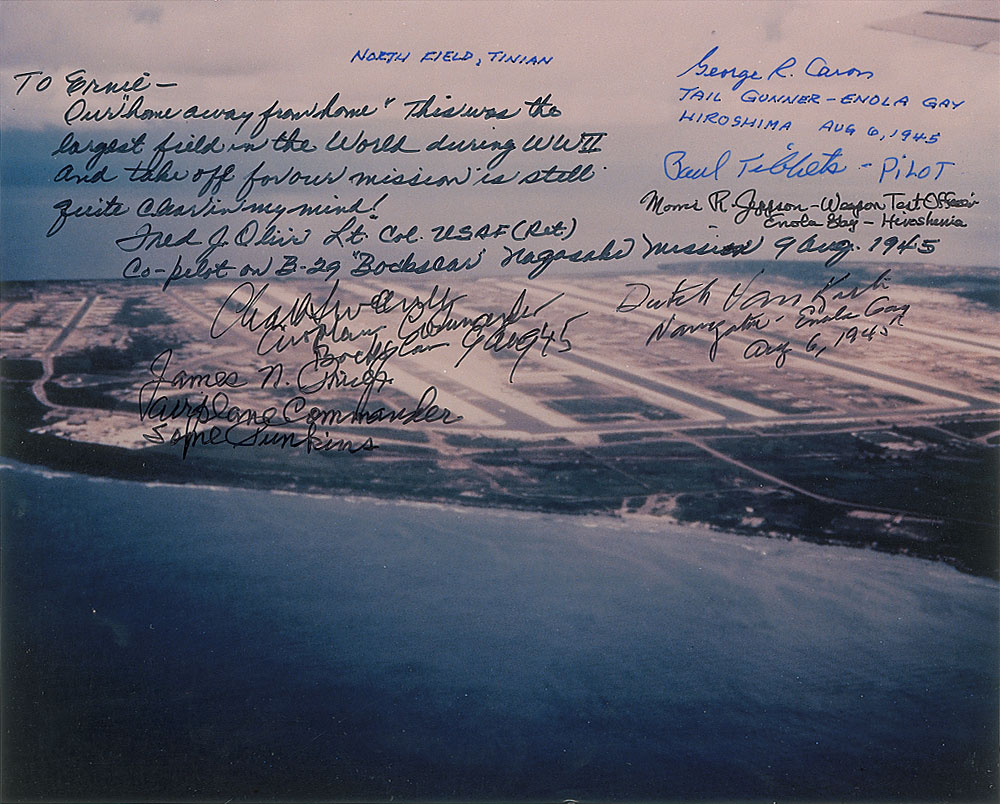 NORTH FIELD, TINIAN
TO Ernie —
Our "home away from home" This was the
largest field in the World during WW II
And take off for our mission is still
quite clear in my mind!
Fred J. Olivi Lt. Col. USAF (Ret)
Co-pilot on B-29 "Bockscar" Nagasaki Mission 9 Aug. 1945
George R. Caron
TAIL GUNNER – ENOLA GAY
HIROSHIMA AUG 6, 1945
Paul Tibbets – PILOT
Morris R. Jeppson – Weapon Test Officer
Enola Gay – Hiroshima
Dutch Van Kirk
Navigator – Enola Gay
Aug 6, 1945
Chas W Sweeney
Airplane Commander
Bocks Car 9 Aug 45
James N. Price Jr.
Airplane Commander
Some Punkins